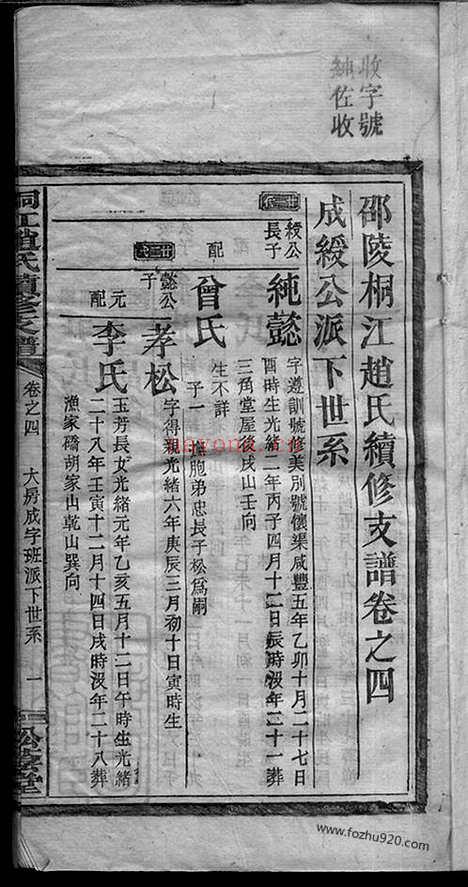 收字號
純佐收
邵陵桐江趙氏續修支譜卷之四
成綬公派下世系
綬公
長子
純懿
字遵訓號修美別號懷渠咸豐五年乙卯十月二十七日
酉時生光緒二年丙子四月十二日辰時沒年二十一葬
三角堂屋後戌山壬向
配
曾氏
生不詳
子一
胞弟忠長子松爲嗣
懿公
子
孝松
字得親光緒六年庚辰三月初十日寅時生
元
配
李氏
玉芳長女光緒元年乙亥五月十二日午時生光緒
二十八年壬寅十二月十四日戌時沒年二十八葬
漁家礄胡家山乾山巽向
桐江趙氏續修支譜
卷之四
大房成字班派下世系
一
www.fozhu920.com